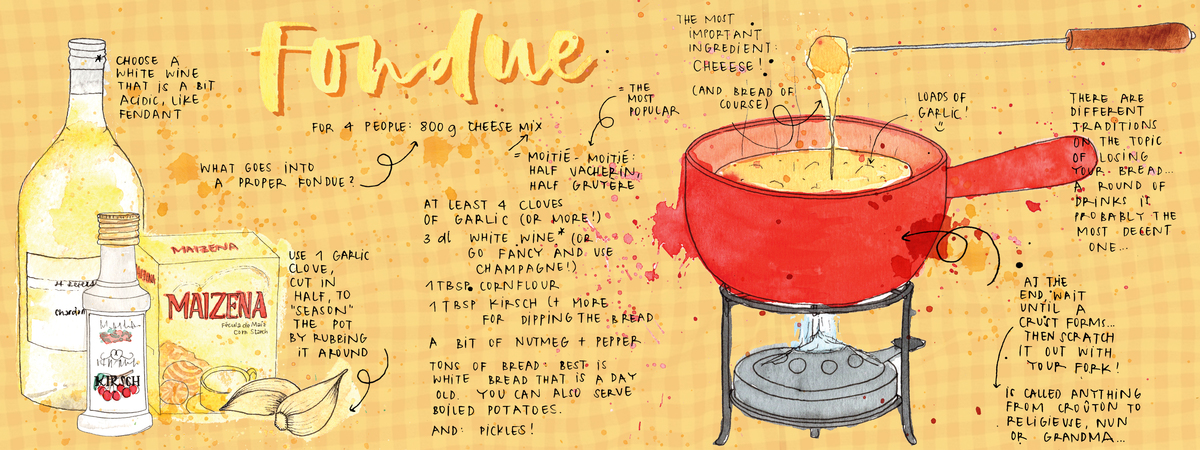 Fondue
CHOOSE A
WHITE WINE
THAT IS A BIT
ACIDIC, LIKE
FENDANT
*
WHAT GOES INTO
A PROPER FONDUE?
FOR 4 PEOPLE: 800g CHEESE MIX
= THE
MOST
POPULAR
= MOITIÉ-MOITIÉ:
HALF VACHERIN,
HALF GRUYERE
AT LEAST 4 CLOVES
OF GARLIC (OR MORE!)
3 dl WHITE WINE* (OR
GO FANCY AND USE
CHAMPAGNE!)
1 TBSP. CORNFLOUR
1 TBSP KIRSCH (+ MORE
FOR DIPPING THE BREAD
A BIT OF NUTMEG + PEPPER
TONS OF BREAD: BEST IS
WHITE BREAD THAT IS A DAY
OLD. YOU CAN ALSO SERVE
BOILED POTATOES.
AND: PICKLES!
USE 1 GARLIC
CLOVE,
CUT IN
HALF, TO
"SEASON"
THE POT
BY RUBBING
IT AROUND
MAIZENA
MAIZENA
Fécula de Maíz
Corn Starch
KIRSCH
THE MOST
IMPORTANT
INGREDIENT:
CHEEESE!
(AND BREAD OF
COURSE)
LOADS OF
GARLIC!
THERE ARE
DIFFERENT
TRADITIONS
ON THE TOPIC
OF LOSING
YOUR BREAD...
A ROUND OF
DRINKS IT
PROBABLY THE
MOST DECENT
ONE...
AT THE
END, WAIT
UNTIL A
CRUST FORMS...
THEN SCRATCH
IT OUT WITH
YOUR FORK!
IS CALLED ANYTHING
FROM CROÛTON TO
RELIGIEUSE, NUN
OR GRANDMA...